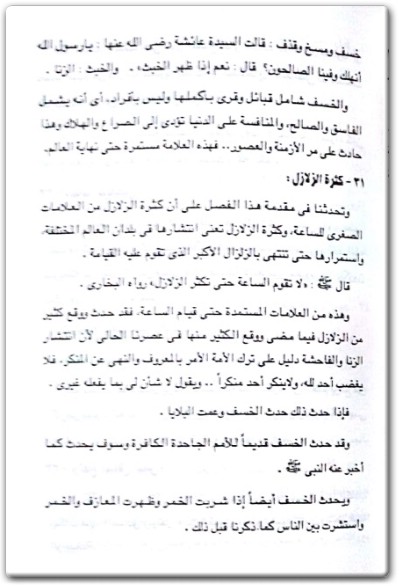 خسف ومسخ وقذف : قالت السيدة عائشة رضى الله عنها : يارسول الله
أنهلك وفينا الصالحون؟ قال : نعم إذا ظهر الخبث» . والخبث : الزنا .
والخسف شامل قبائل وقرى بأكملها وليس بأفراد، أى أنه يشمل
الفاسق والصالح، والمنافسة على الدنيا تؤدى إلى الصراع والهلاك وهذا
حادث على مر الأزمنة والعصور.. فهذه العلامة مستمرة حتى نهاية العالم.
٣١- كثرة الزلازل :
وتحدثنا فى مقدمة هذا الفصل على أن كثرة الزلازل من العلامات
الصغرى للساعة، وكثرة الزلازل تعنى انتشارها فى بلدان العالم المختلفة،
واستمرارها حتى تنتهى بالزلزال الأكبر الذى تقوم عليه القيامة .
قال ﷺ : «لا تقوم الساعة حتى تكثر الزلازل» رواه البخارى .
وهذه من العلامات المستمدة حتى قيام الساعة، فقد حدث ووقع كثير
من الزلازل فيما مضى ووقع الكثير منها فى عصرنا الحالى لأن انتشار
الزنا والفاحشة دليل على ترك الأمة الأمر بالمعروف والنهى عن المنكر، فلا
يغضب أحد لله، ولاينكر أحد منكراً .. ويقول لا شأن لى بما يفعله غيرى .
فإذا حدث ذلك حدث الخسف وعمت البلايا .
وقد حدث الخسف قديماً للأمم الجاحدة الكافرة وسوف يحدث كما
أخبر عنه النبى ﷺ .
ويحدث الخسف أيضاً إذا شربت الخمر وظهرت المعازف والخمر
واستشرت بين الناس كما ذكرنا قبل ذلك .